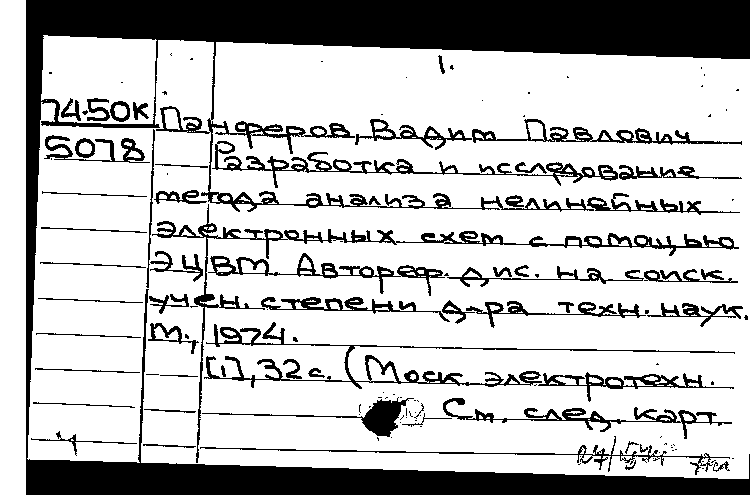 1.
74-50К Панферов, Вадим Павлович
5078 Разработка и исследование
метода анализа нелинейных
электронных схем с помощью
ЭЦВМ. Автореф. дис. на соиск.
учен. степени д-ра техн. наук.
М., 1974.
[1], 32 с. (Моск. электротехн.
См. след. карт.